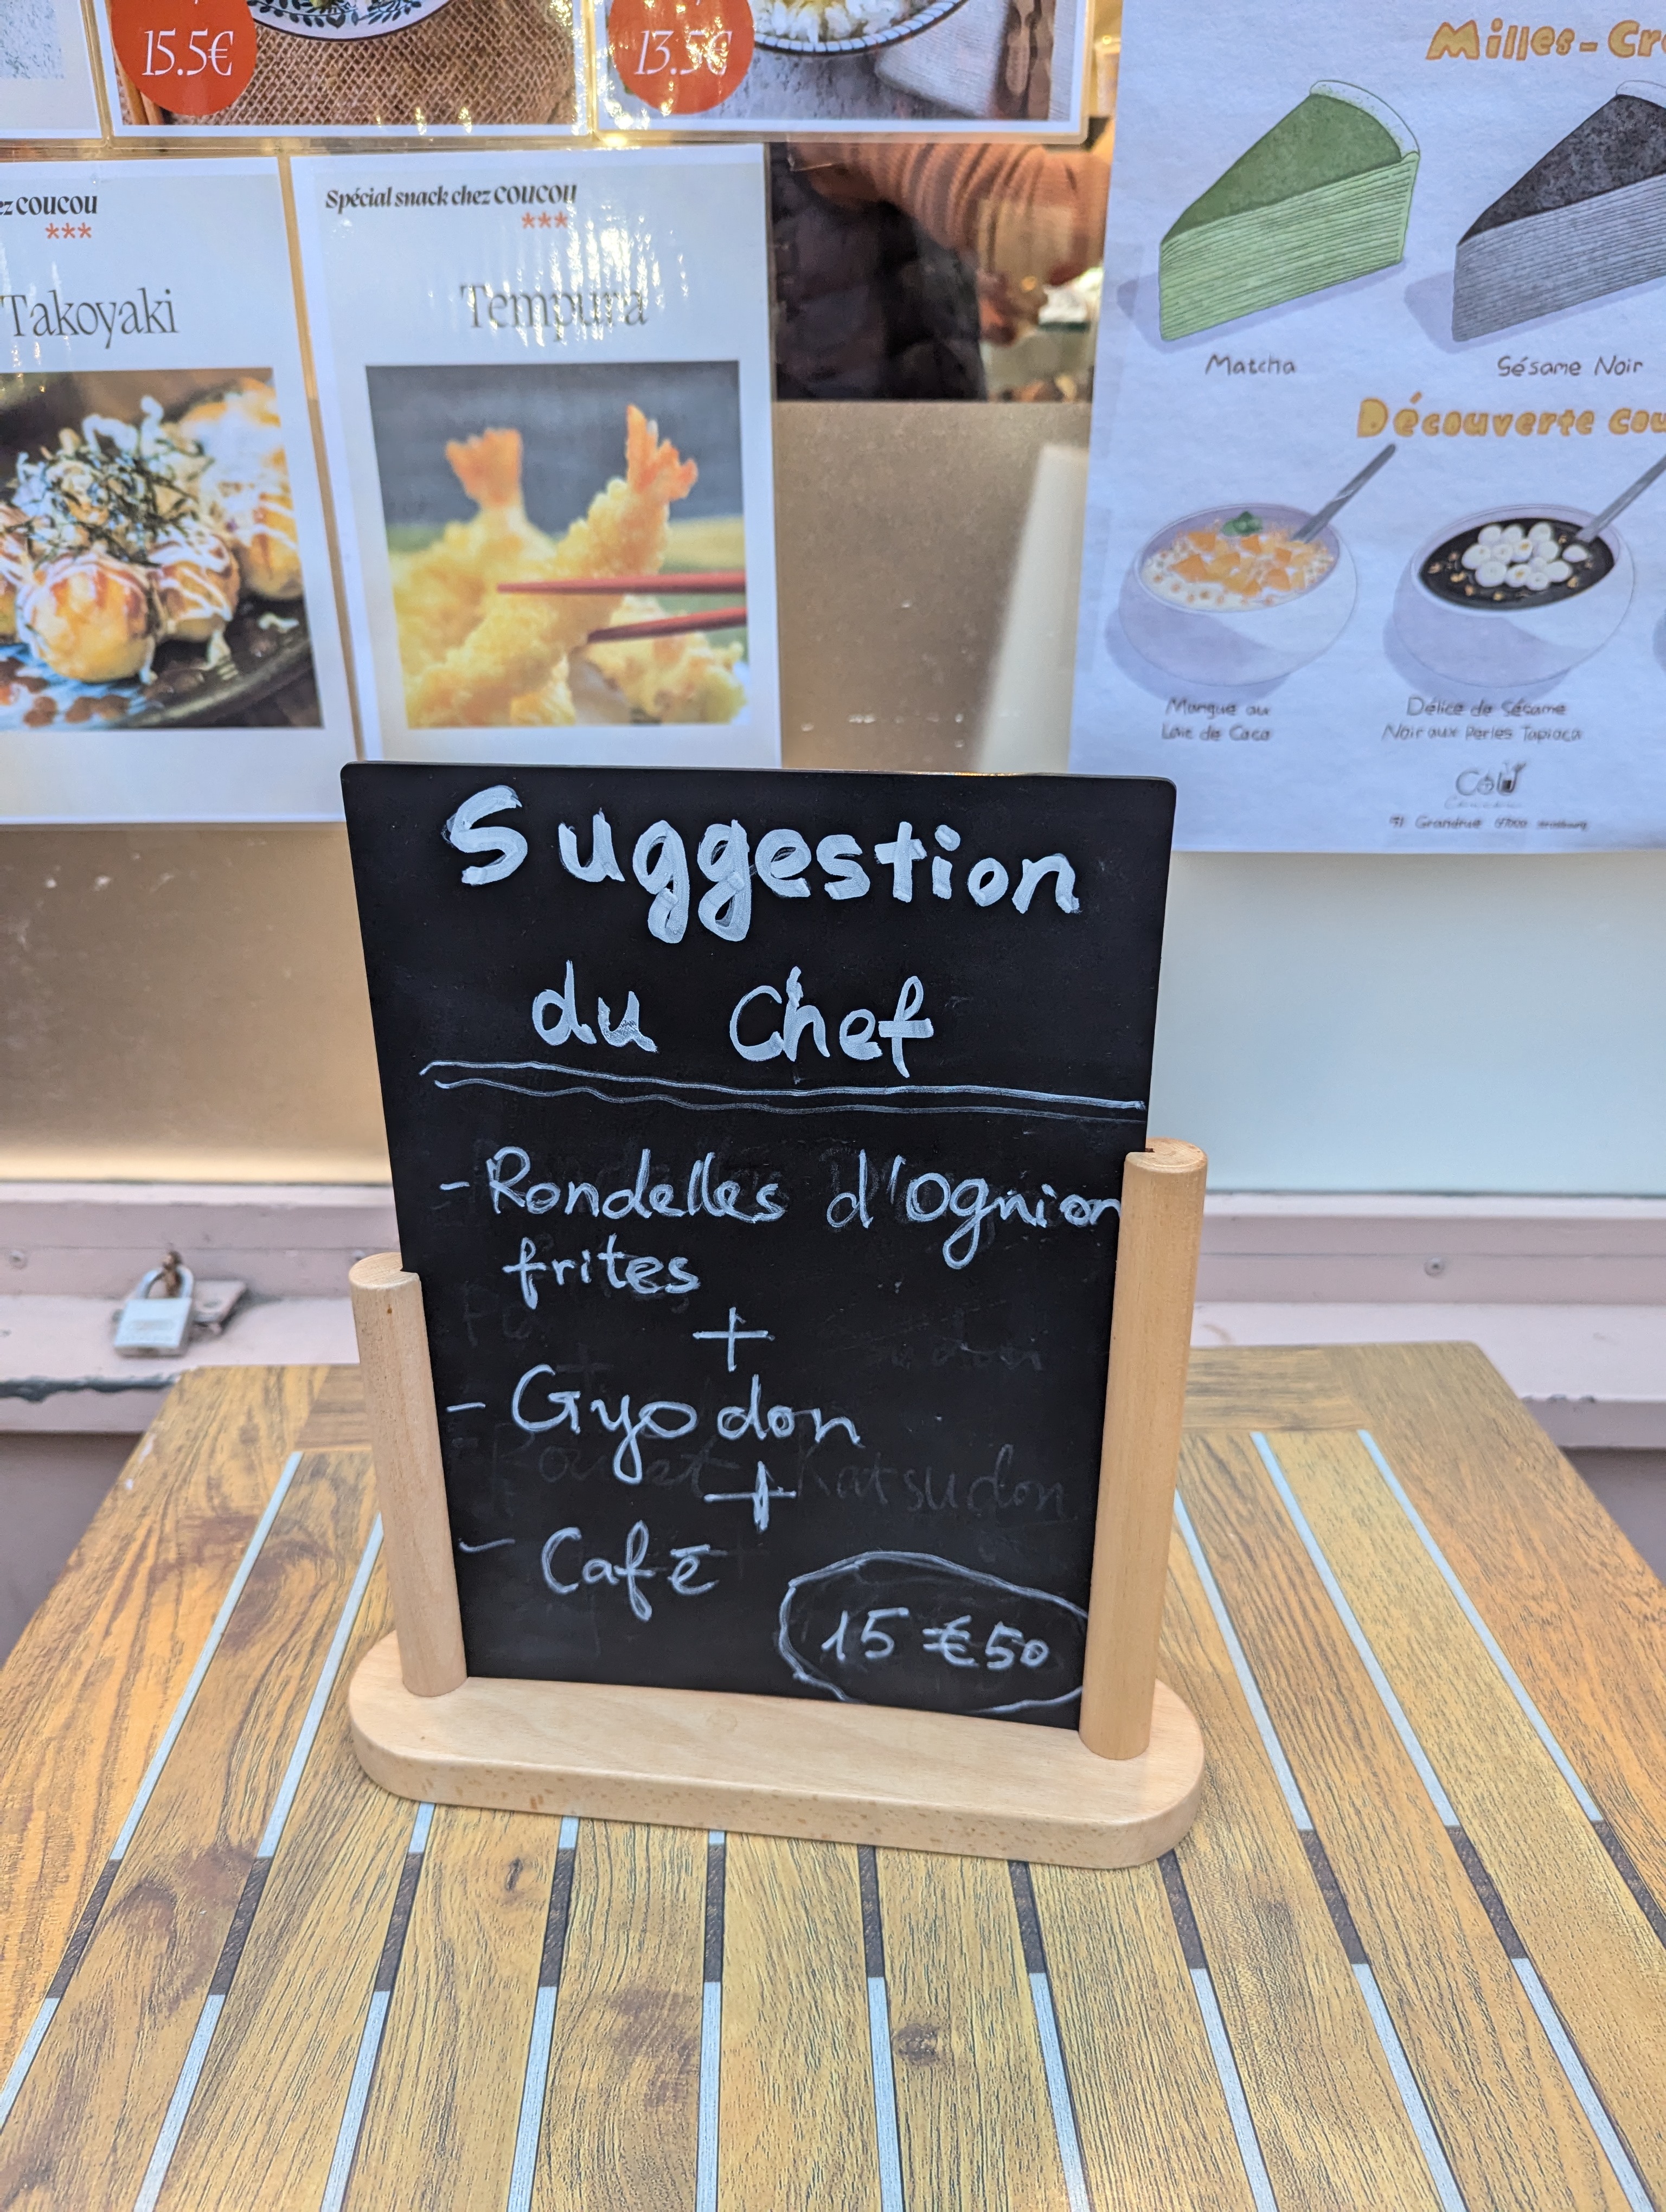 15.5€
13.5€
ez COUCOU
***
Takoyaki
Spécial snack chez COUCOU
***
Tempura
Milles-Cr
Matcha
Sésame Noir
Découverte cou
Mangue au
Lait de Coco
Délice de Sésame
Noir aux Perles Tapioca
91 Grandrue 67000
Suggestion
du Chef
- Rondelles d'Ognion
frites
+
- Gyodon
+
- Café
15€50
Katsudon